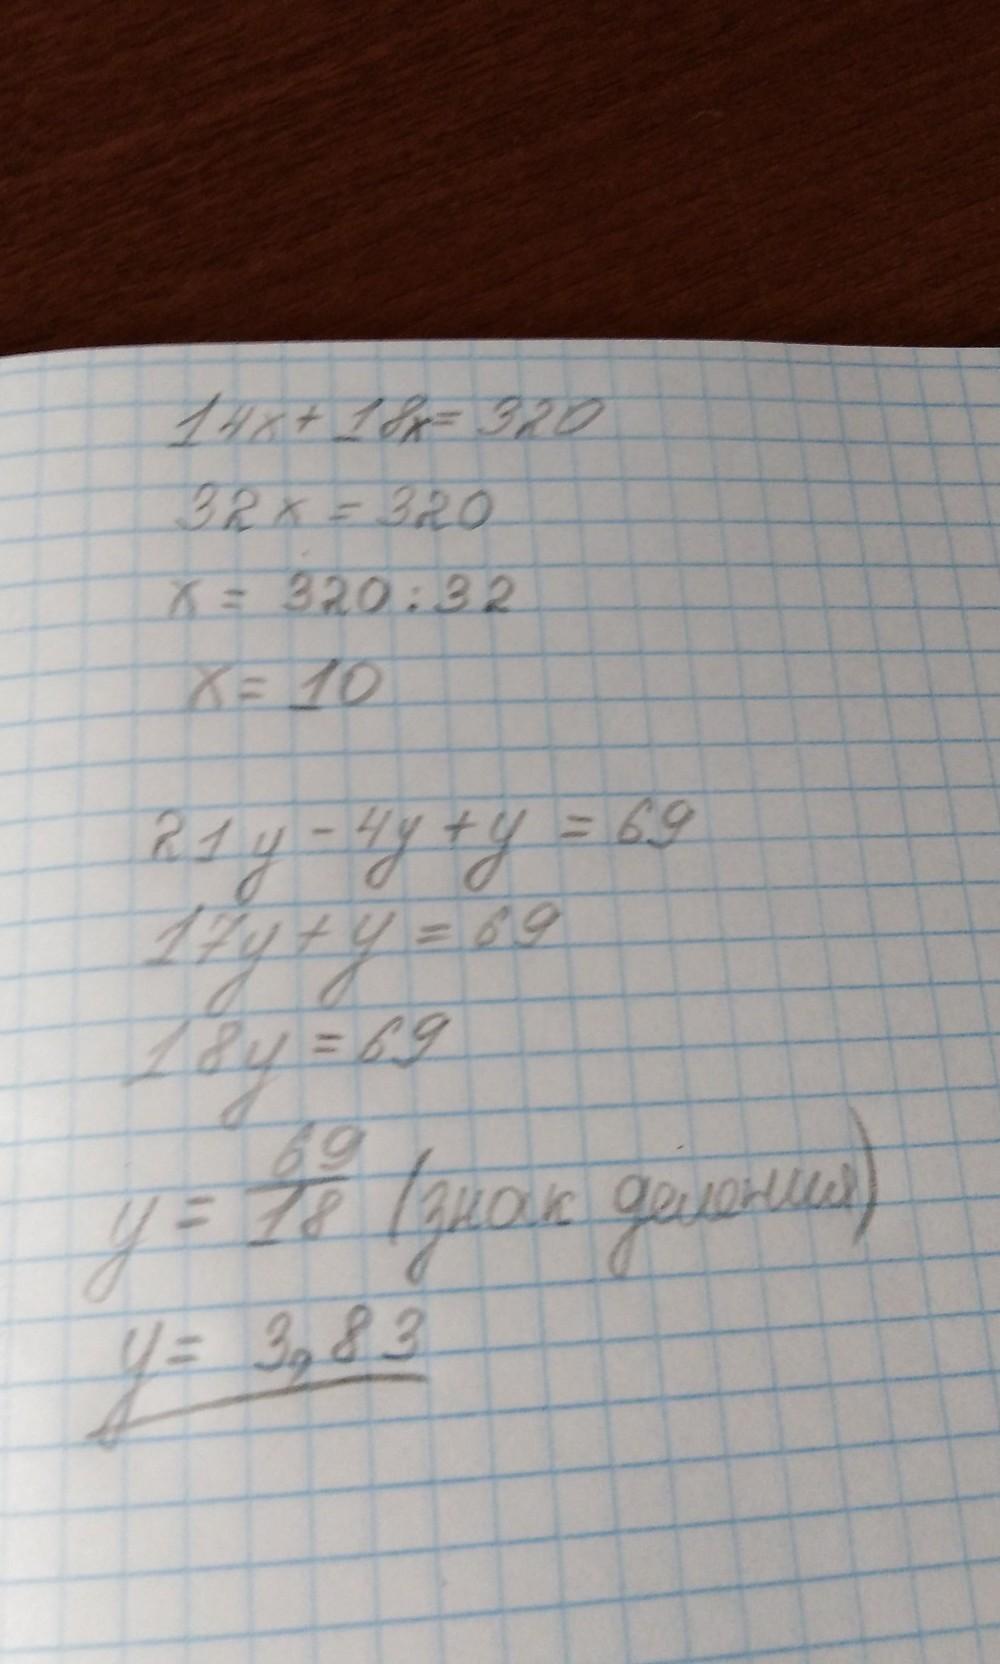 14x + 18x = 320
32x = 320
x = 320 : 32
x = 10
21y - 4y + y = 69
17y + y = 69
18y = 69
y = 69/18 (знак деления)
y = 3,83